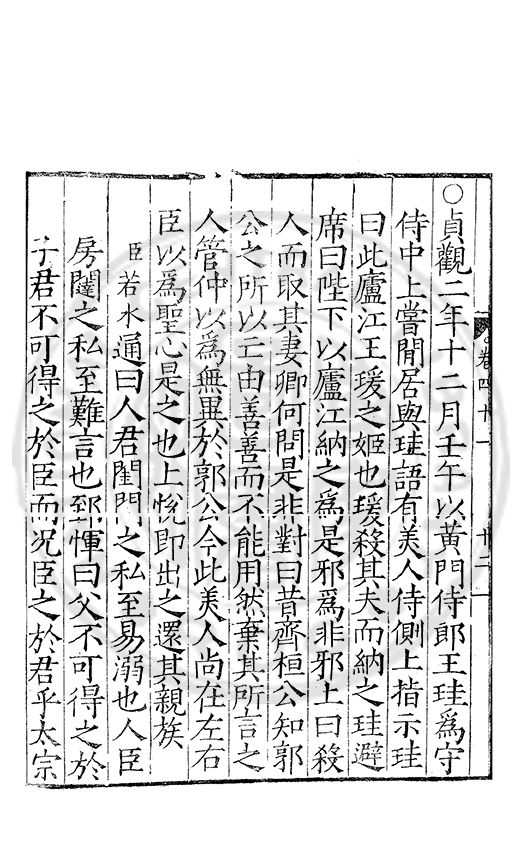 ○貞觀二年十二月壬午以黃門侍郎王珪爲守
侍中上嘗閒居與珪語有美人侍側上指示珪
曰此廬江王瑗之姬也瑗殺其夫而納之珪避
席曰陛下以廬江納之爲是邪爲非邪上曰殺
人而取其妻卿何問是非對曰昔齊桓公知郭
公之所以亡由善善而不能用然棄其所言之
人管仲以爲無異於郭公今此美人尚在左右
臣以爲聖心是之也上悅即出之還其親族
臣若水通曰人君閨門之私至易溺也人臣
房闥之私至難言也郅惲曰父不可得之於
子君不可得之於臣而況臣之於君乎太宗
卷四十一
廿二